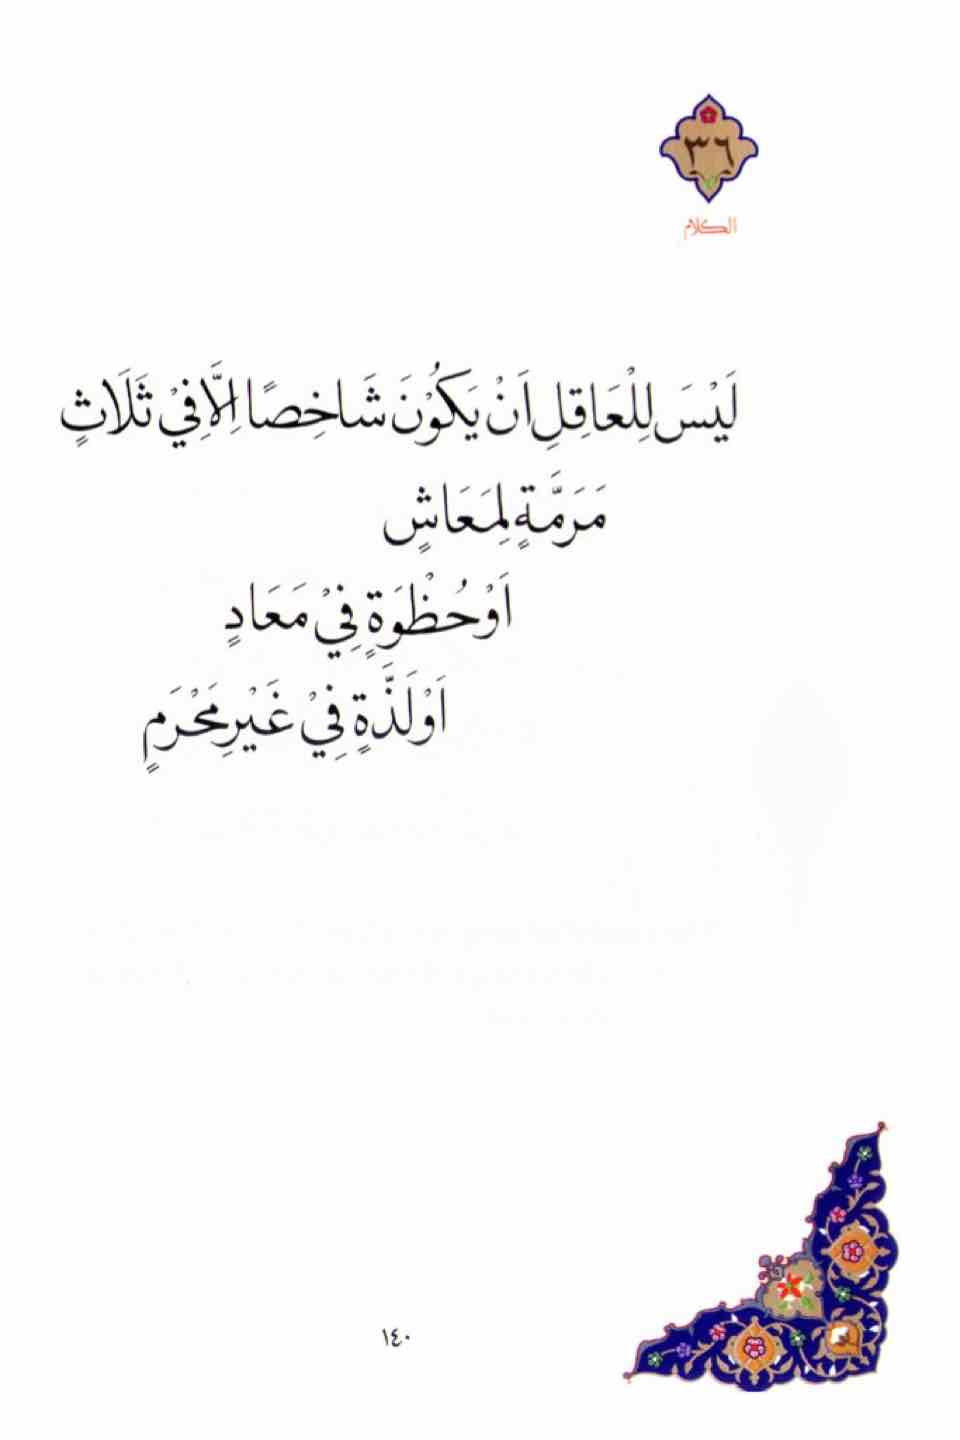 ٣٦
الكلام
لَيْسَ لِلْعَاقِلِ اَنْ يَكُوْنَ شَاخِصًا اِلَّا فِيْ ثَلَاثٍ
مَرَمَّةٍ لِمَعَاشٍ
اَوْ حُظْوَةٍ فِيْ مَعَادٍ
اَوْ لَذَّةٍ فِيْ غَيْرِ مَحْرَمٍ
١٤٠